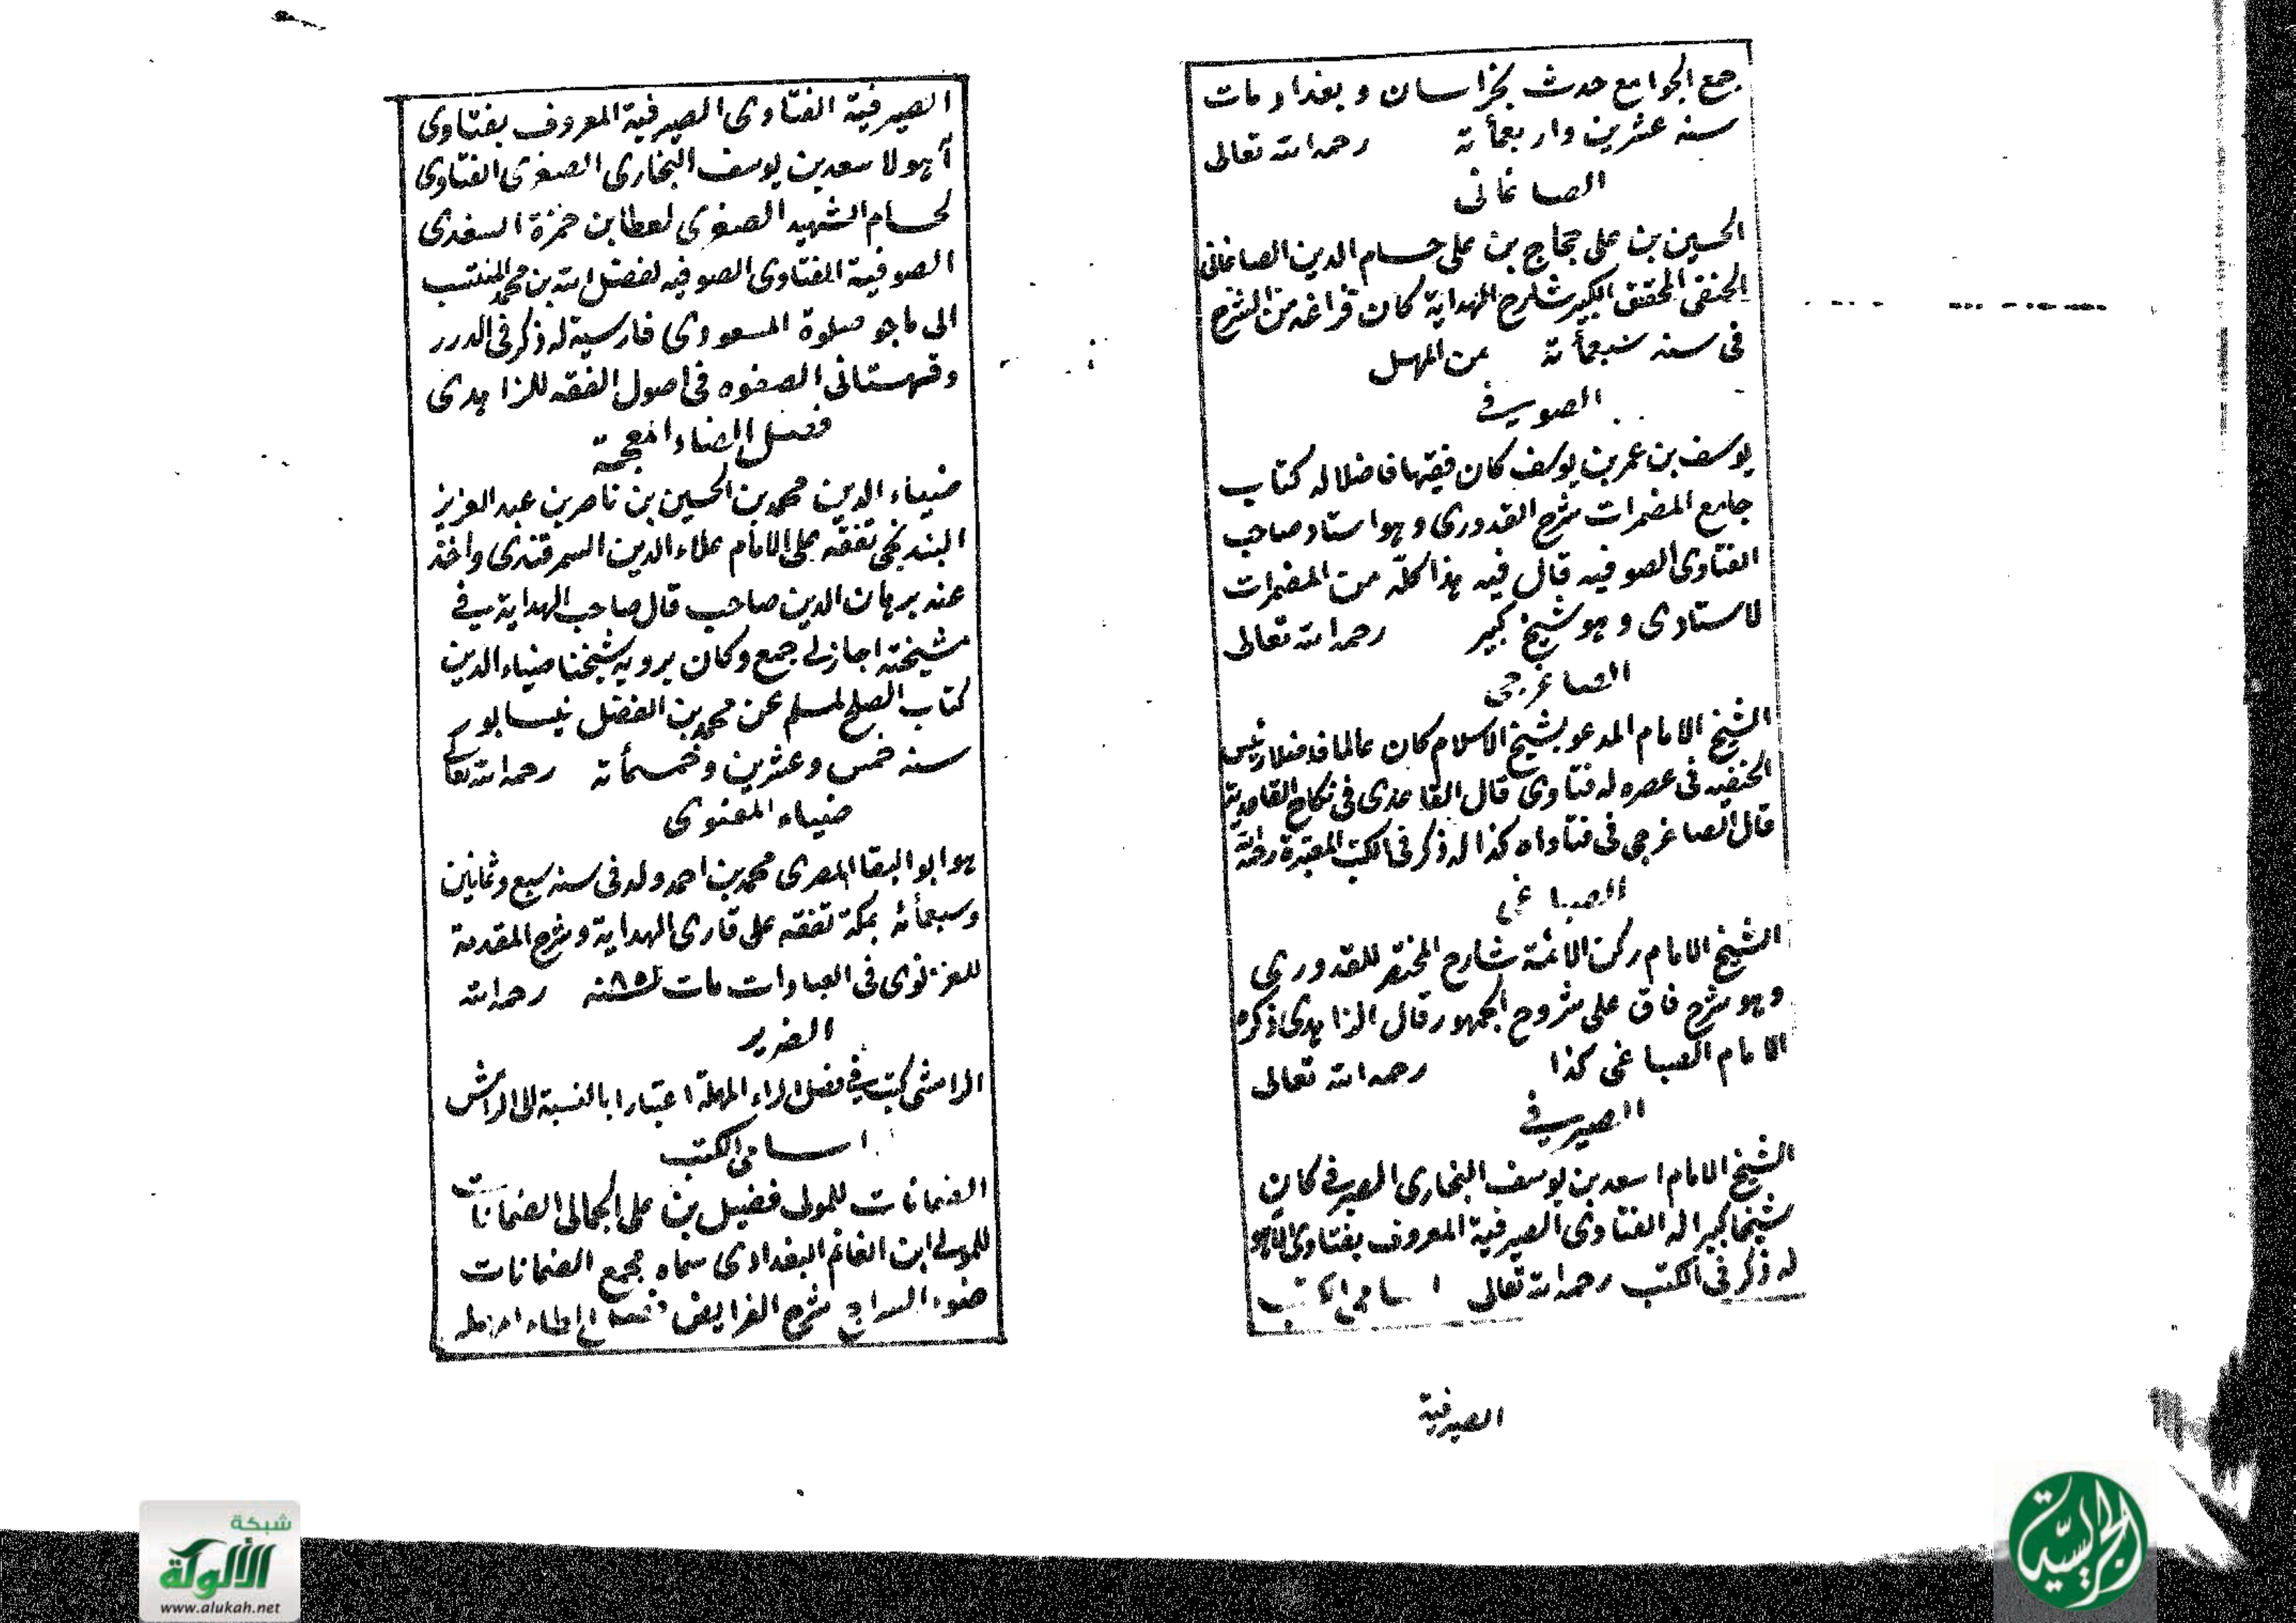 جمع الجوامع حدث بخراسان و بغداد مات
سنه عشرين واربعمأته رحمه الله تعالى
الصاغانى
الحسين بن على حجاج بن على حسام الدين الصاغانى
الحنفى المحقق الكبير شارح الهداية كان فراغه من الشرح
فى سنه سبعمأته من المهل
الصوفى
يوسف بن عمر بن يوسف كان فقيها فاضلا له كتاب
جامع المضمرات شرح القدورى وهو استاد صاحب
الفتاوى الصوفيه قال فيه هذا كله من المضمرات
لاستادى وهو شيخ كبير رحمه الله تعالى
الصاغرجى
الشيخ الامام المدعو بشيخ الاسلام كان عالما فاضلا رئيس
الحنفيه فى عصره له فتاوى قال القاعدى فى نكاح القاعدية
قال الصاغرجى فى فتاواه كذا له ذكر فى الكتب المعتبرة رحمه الله
الصباغى
الشيخ الامام ركن الائمة شارح المختصر للقدورى
وهو شرح فاق على شروح الجمهور قال الزاهدى ذكره
الامام الصباغى كذا رحمه الله تعالى
الصيرفى
الشيخ الامام اسعد بن يوسف البخارى الصيرفى كان
شيخا كبيرا له الفتاوى الصيرفية المعروف بفتاوى
له ذكر فى الكتب رحمه الله تعالى اسامى الكتب
الصيرفية
الصيرفية الفتاوى الصيرفية المعروف بفتاوى
آهو لاسعد بن يوسف البخارى الصغرى الفتاوى
لحسام الشهيد الصغرى لعطا بن حمزة السغدى
الصوفية الفتاوى الصوفيه لفضل الله بن محمد المنتسب
الى ماجو صلوة المسعودى فارسية له ذكر فى الدرر
وقهستانى الصفوه فى اصول الفقه للزاهدى
فصل الضاد المعجمة
ضياء الدين محمد بن الحسين بن ناصر بن عبد العزيز
البندنجى تفقه على الامام علاء الدين السمرقندى واخذ
عنه برهان الدين صاحب قال صاحب الهداية فى
مشيخته اجاز لى جمع وكان يرويه شيخنا ضياء الدين
كتاب الصلح لمسلم عن محمد بن الفضل نيسابور
سنه خمس وعشرين وخمسمأته رحمه الله تعالى
ضياء المعنوى
هو ابو البقا المصرى محمد بن احمد ولد فى سنه سبع وثمانين
وسبعمأئه بمكة تفقه على قارى الهداية وشرح المقدمة
للغزنوى فى العبادات مات سنه ٨٥ رحمه الله
الضرير
الرامشى كتب فى فصل الراء المهملة اعتبارا بالنسبة الى الرامش
اسامى الكتب
الضمانات للمولى فضيل بن على الجمالى الضمانات
للمولى ابن الغانم البغدادى سماه مجمع الضمانات
ضوء السراج شرح الفرايض فصل الطاء المهملة
شبكة
الألوكة
www.alukah.net